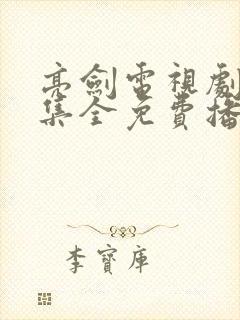 亮劍電視劇
集全免費播
李寶庫